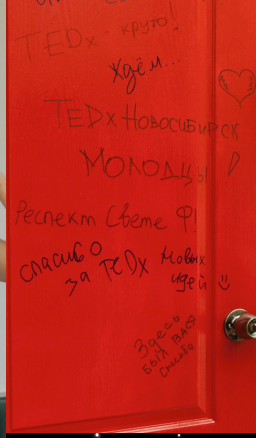 TEDx - круто!
Ждём...
TEDx Новосибирск
Молодцы!
Респект Свете Ф!
спасибо
за TEDx Новых
идей :)
Здесь
был вася
Спасибо